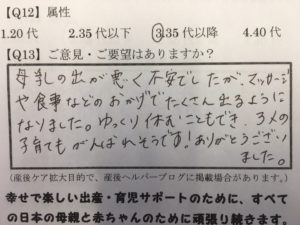 【Q12】属性
1.20 代　2.35 代以下　3.35 代以降　4.40 代
【Q13】ご意見・ご要望はありますか?
母乳の出が悪く不安でしたが、マッサージ
や食事などのおかげでたくさん出るように
なりました。ゆっくり休むこともでき、3人の
子育てもがんばれそうです!ありがとうござい
ました。
(産後ケア拡大目的で、産後ヘルパーブログに掲載場合があります。)
幸せで楽しい出産・育児サポートのために、すべて
の日本の母親と赤ちゃんのために頑張り続きます。